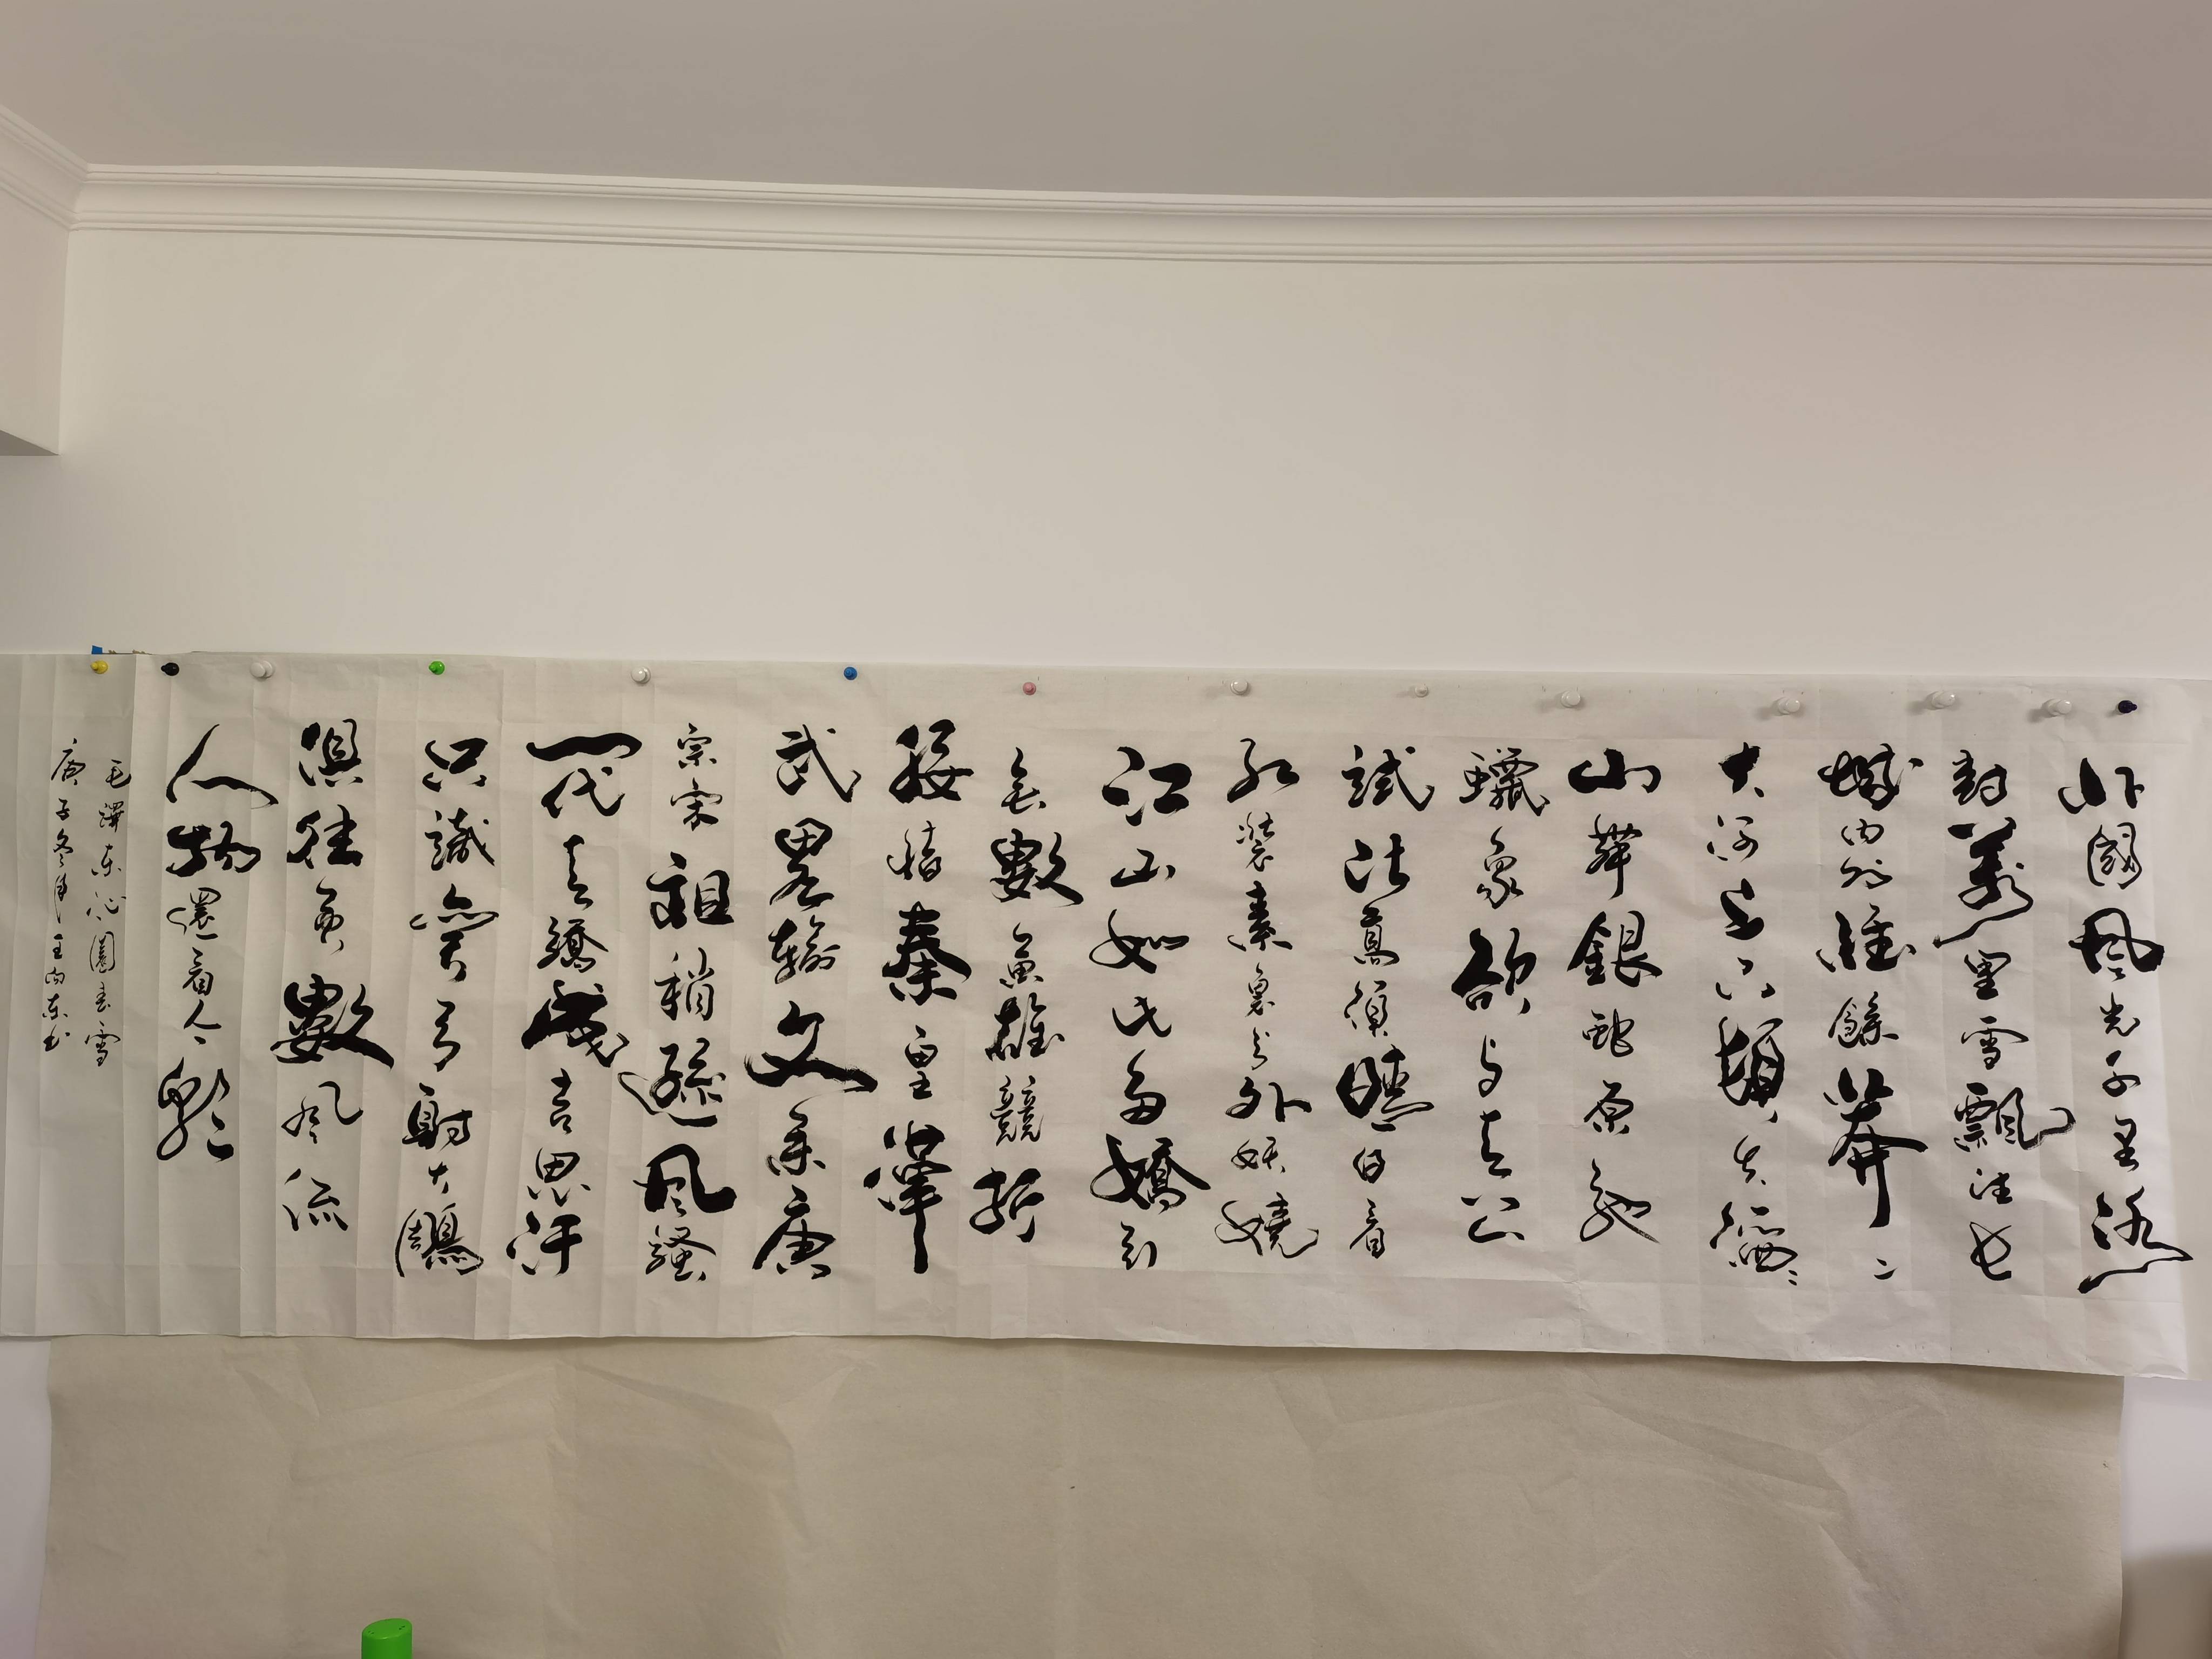 北國風光千里冰
封萬里雪飄望長
城内外惟餘莽〻
大河上下頓失滔〻
山舞銀蛇原馳
蠟象欲与天公
試比高須晴日看
紅裝素裹分外妖嬈
江山如此多嬌引
無數英雄競折
腰惜秦皇漢
武畧輸文采唐
宗宋祖稍遜風騷
一代天驕成吉思汗
只識彎弓射大鵰
俱往矣數風流
人物還看今朝
毛澤東沁園春雪
庚子冬王向東书